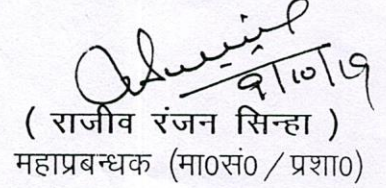 9/10/19
( राजीव रंजन सिन्हा )
महाप्रबन्धक (मा0सं0 / प्रशा0)